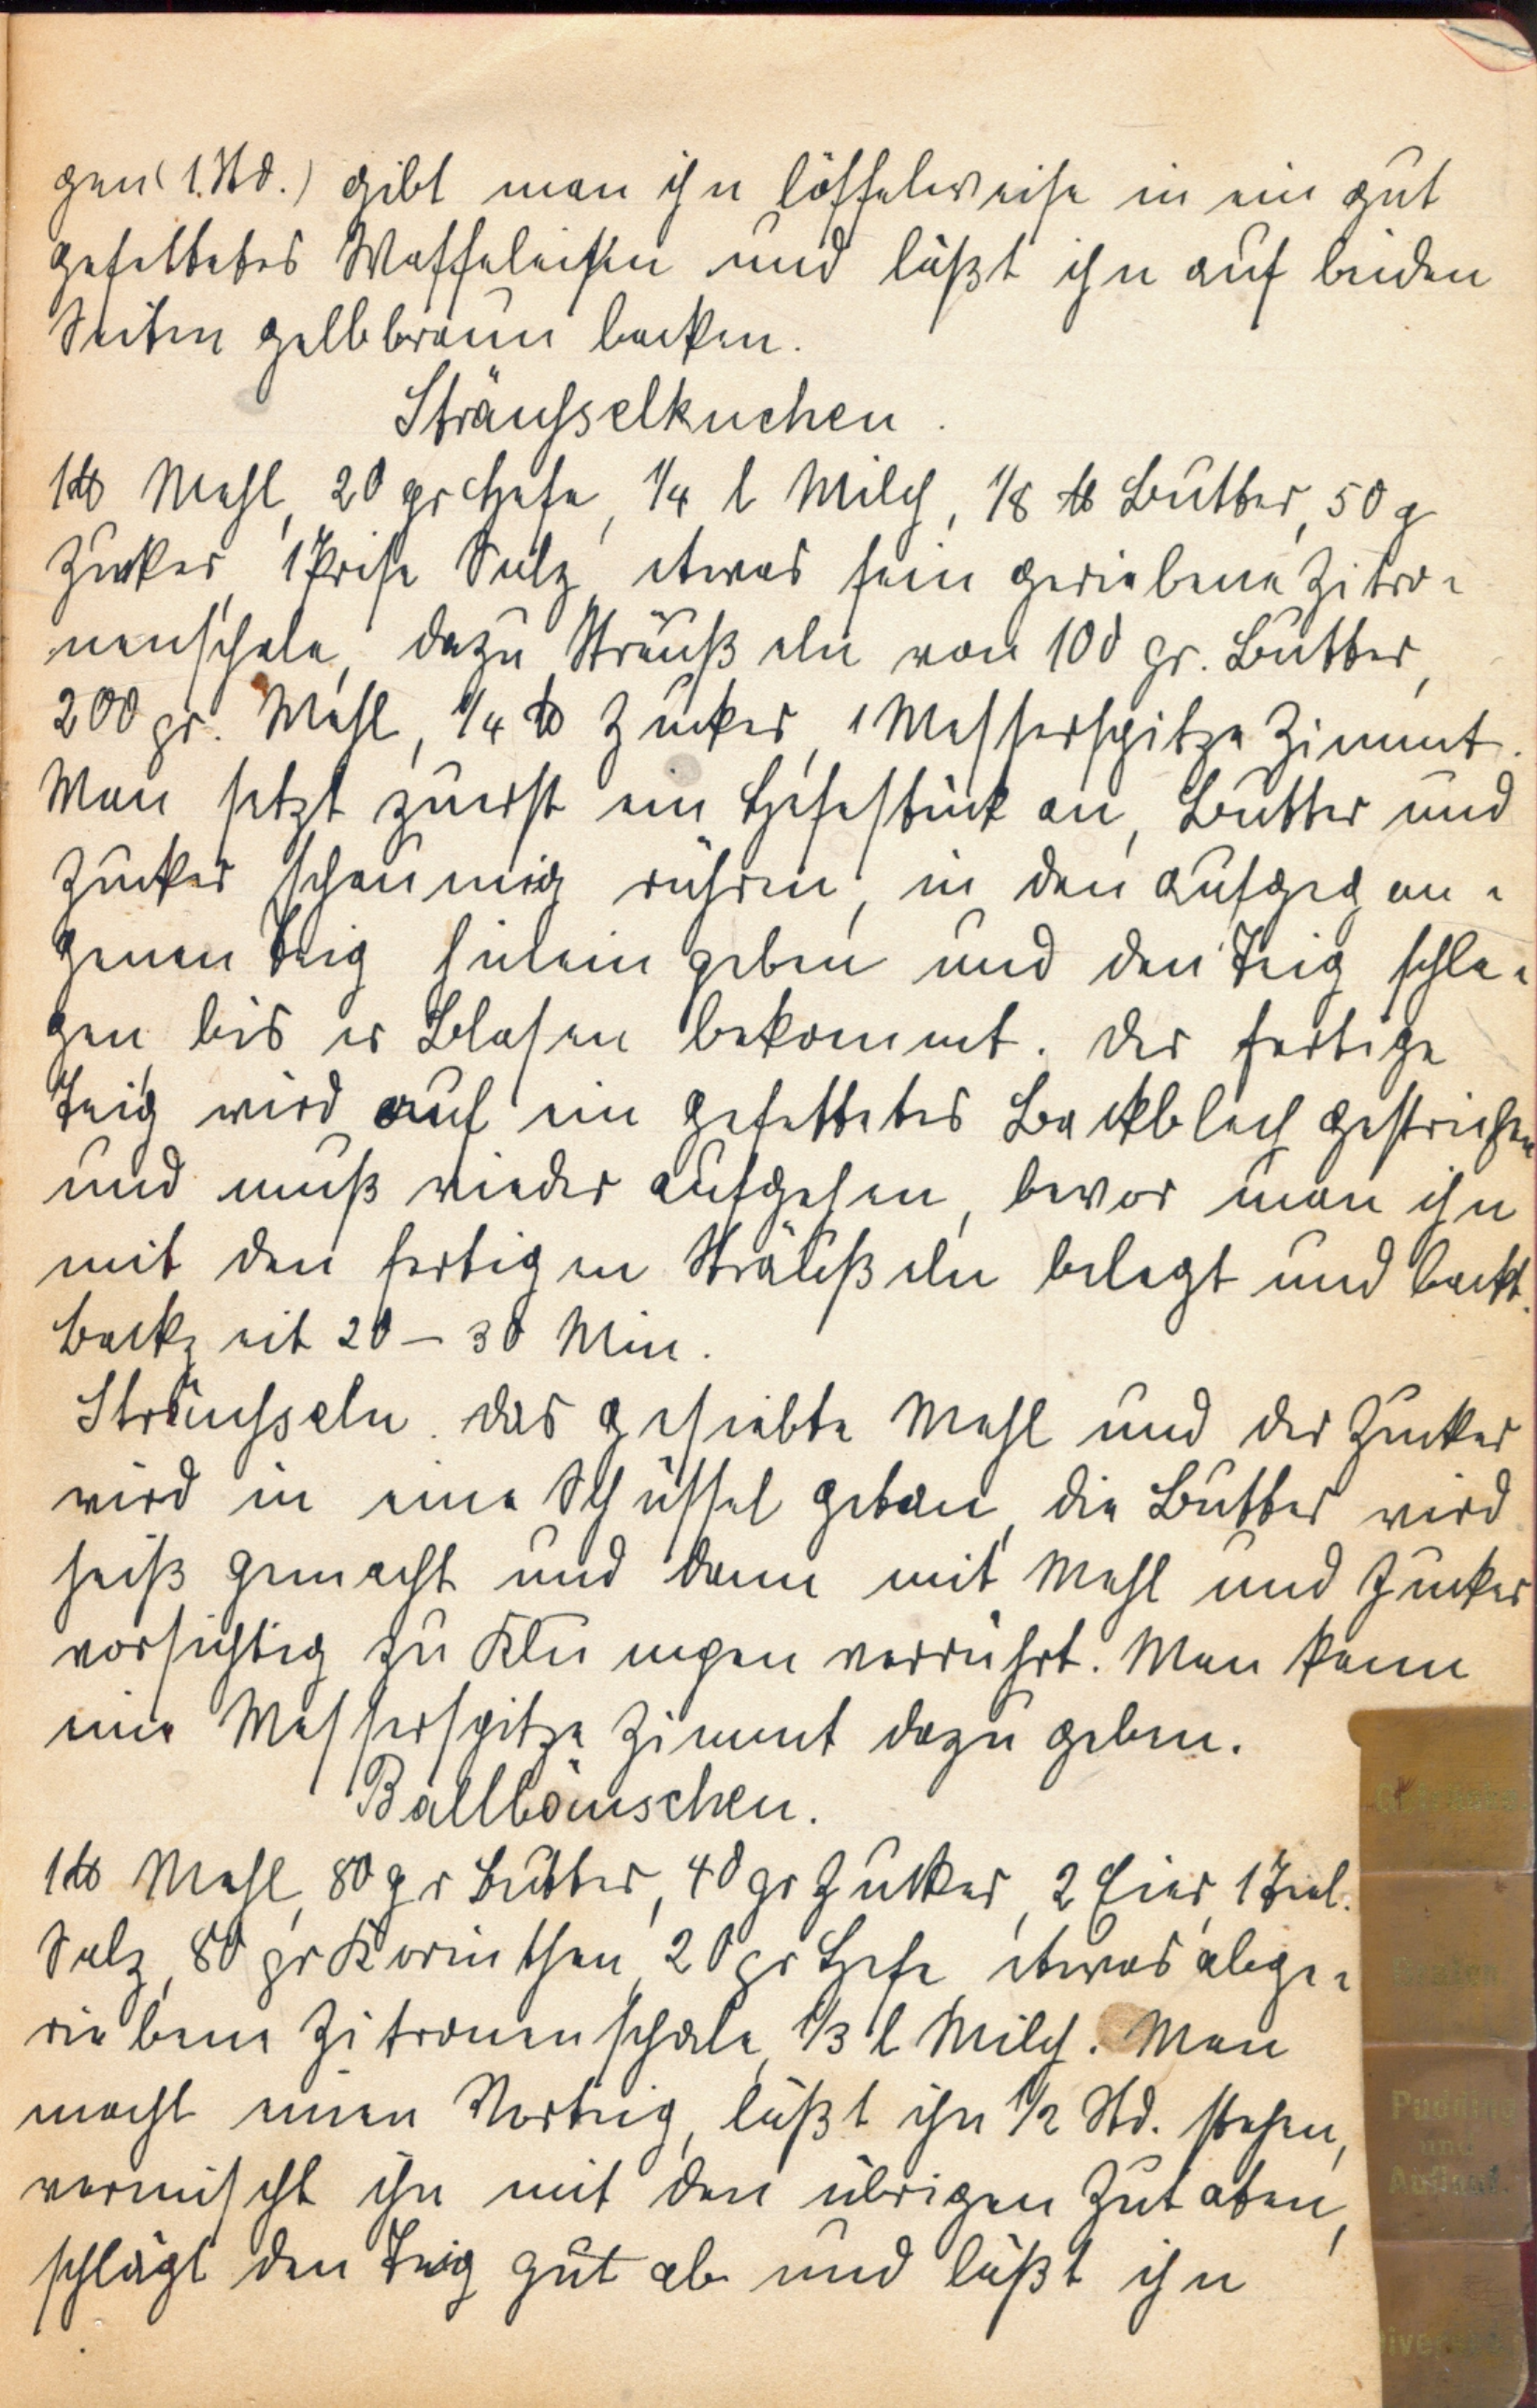 gen (1. Std.) gibt man ihn löffelweise in ein gut
gefettetes Waffeleisen und läßt ihn auf beiden
Seiten gelbbraun backen.
Sträusselkuchen.
1 ℔ Mehl, 20 gr Hefe, 1/4 l Milch, 1/8 ℔ Butter, 50 g
Zucker, 1 Prise Salz, etwas fein geriebene Zitro-
nenschale, dazu Sträußeln von 100 gr. Butter,
200 gr. Mehl, 1/4 ℔ Zucker, 1 Messerspitze Zimmt.
Man setzt zuerst ein Hefestück an, Butter und
Zucker schaumig rühren, in den aufgegan-
genen Teig hinein geben und den Teig schla-
gen bis er Blasen bekommt. Der fertige
Teig wird auf ein gefettetes Backblech gestrichen
und muß wieder aufgehen, bevor man ihn
mit den fertigen Sträußeln belegt und backt.
Backzeit 20 – 30 Min.
Sträusseln. Das gesiebte Mehl und der Zucker
wird in eine Schüssel getan, die Butter wird
heiß gemacht und dann mit Mehl und Zucker
vorsichtig zu Klumpen verrührt. Man kann
eine Messerspitze Zimmt dazu geben.
Ballbäuschen.
1 ℔ Mehl, 80 gr Butter, 40 gr Zucker, 2 Eier, 1 Teel.
Salz, 80 gr Korinthen, 20 gr Hefe, etwas abge-
riebene Zitronenschale, 1/3 l Milch. Man
macht einen Vorteig, läßt ihn 1/2 Std. stehen,
vermischt ihn mit den übrigen Zutaten,
schlägt den Teig gut ab und läßt ihn
Pudding
und
Auflauf